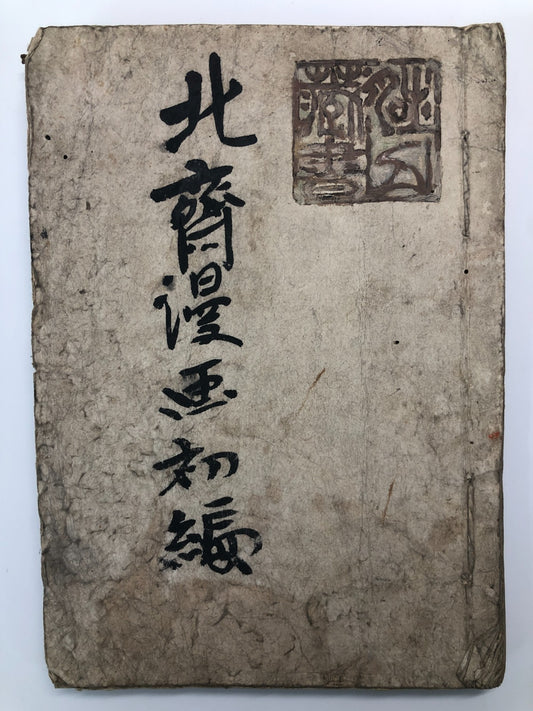 北齋漫画初編
藏書